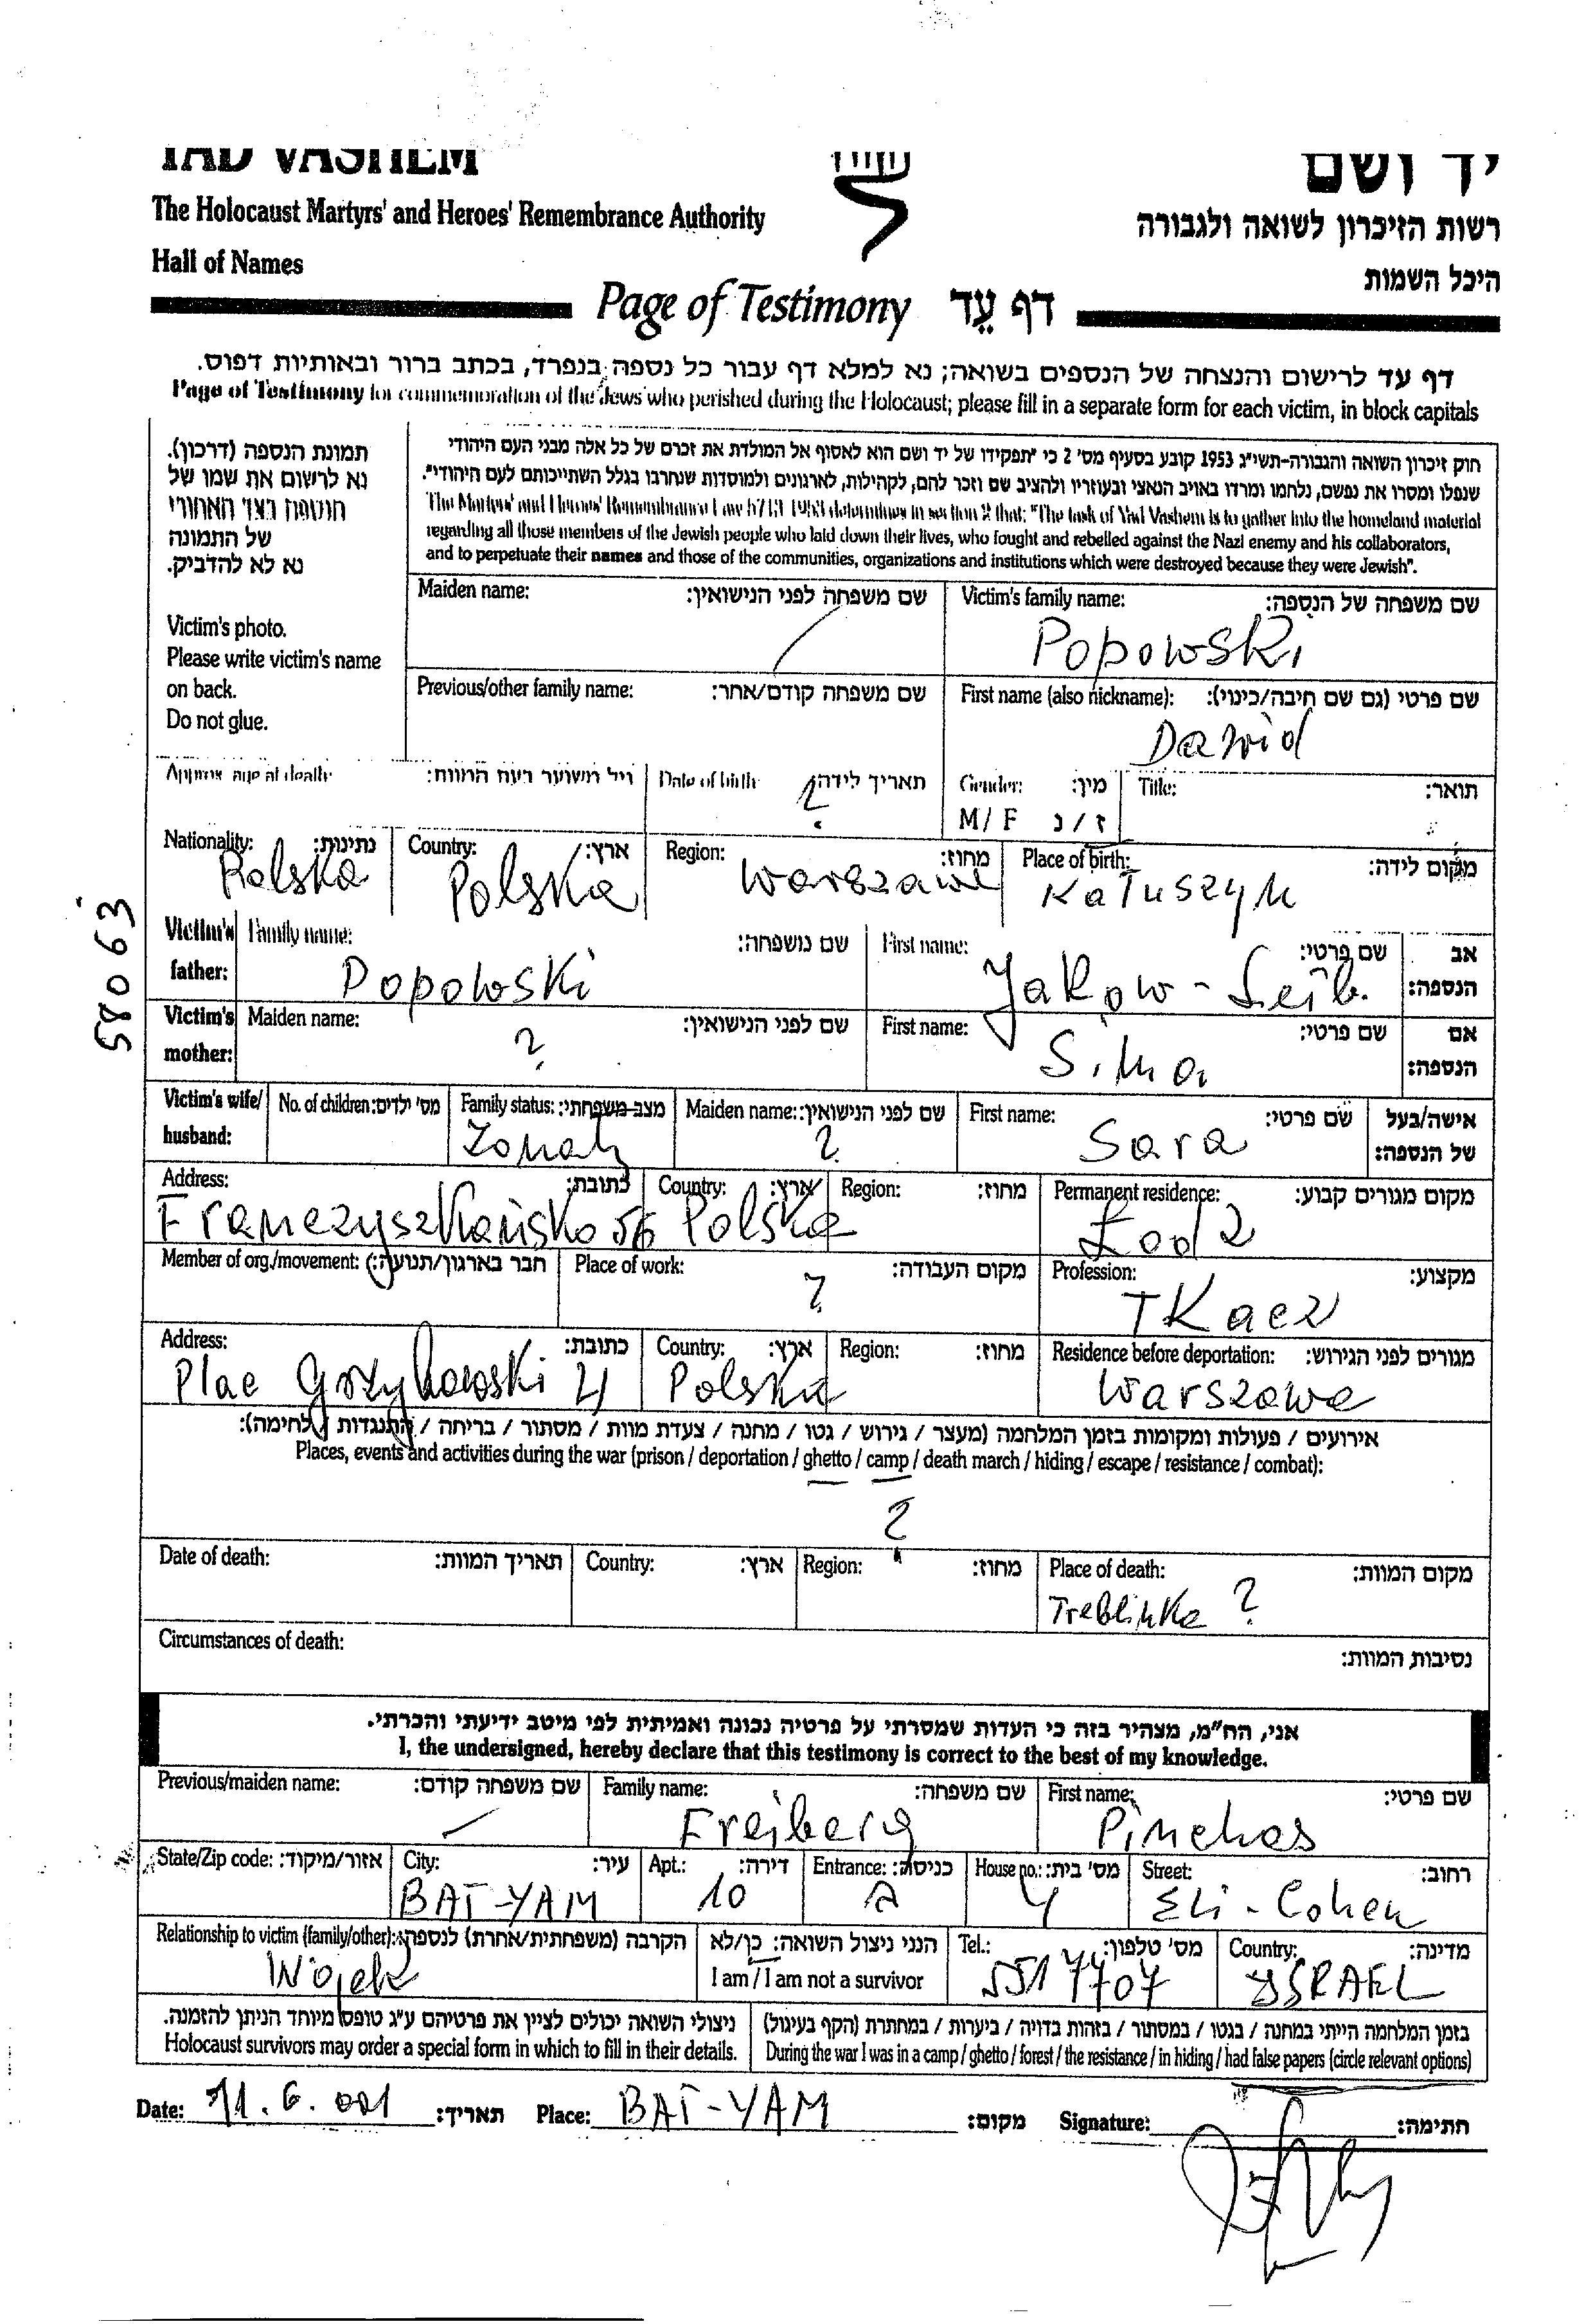 YAD VASHEM
יד ושם
The Holocaust Martyrs' and Heroes' Remembrance Authority
רשות הזיכרון לשואה ולגבורה
Hall of Names
היכל השמות
Page of Testimony דף עֵד
דף עד לרישום והנצחה של הנספים בשואה; נא למלא דף עבור כל נספה בנפרד, בכתב ברור ובאותיות דפוס.
Page of Testimony for commemoration of the Jews who perished during the Holocaust; please fill in a separate form for each victim, in block capitals
תמונת הנספה (דרכון).
נא לרשום את שמו של
הנספה בצד האחורי
של התמונה
נא לא להדביק.
Victim's photo.
Please write victim's name
on back.
Do not glue.
חוק זיכרון השואה והגבורה-תשי"ג 1953 קובע בסעיף מס' 2 כי "תפקידו של יד ושם הוא לאסוף אל המולדת את זכרם של כל אלה מבני העם היהודי
שנפלו ומסרו את נפשם, נלחמו ומרדו באויב הנאצי ובעוזריו ולהציב שם וזכר להם, לקהילות, לארגונים ולמוסדות שנחרבו בגלל השתייכותם לעם היהודי".
The Martyrs' and Heroes' Remembrance Law 5713-1953 determines in section 2 that: "The task of Yad Vashem is to gather into the homeland material
regarding all those members of the Jewish people who laid down their lives, who fought and rebelled against the Nazi enemy and his collaborators,
and to perpetuate their names and those of the communities, organizations and institutions which were destroyed because they were Jewish".
Maiden name: שם משפחה לפני הנישואין: Victim's family name: שם משפחה של הנספה:
/ Popowski
Previous/other family name: שם משפחה קודם/אחר: First name (also nickname): שם פרטי (גם שם חיבה/כינוי):
Dawid
Approx. age at death: גיל משוער בעת המוות: Date of birth: תאריך לידה: Gender: מין: Title: תואר:
? M / F ז / נ
Nationality: נתינות: Country: ארץ: Region: מחוז: Place of birth: מקום לידה:
Polska Polska Warszawa Kałuszyn
58063
Victim's father: Family name: שם משפחה: First name: שם פרטי: אב הנספה:
Popowski Jakow - Leib
Victim's mother: Maiden name: שם לפני הנישואין: First name: שם פרטי: אם הנספה:
? Sima
Victim's wife/ husband: No. of children: מס' ילדים: Family status: מצב משפחתי: Maiden name: שם לפני הנישואין: First name: שם פרטי: אישה/בעל של הנספה:
Zonaty ? Sara
Address: כתובת: Country: ארץ: Region: מחוז: Permanent residence: מקום מגורים קבוע:
Franczyszkańska 56 Polska Łodz
Member of org./movement: חבר בארגון/תנועה: Place of work: מקום העבודה: Profession: מקצוע:
? Tkacz
Address: כתובת: Country: ארץ: Region: מחוז: Residence before deportation: מגורים לפני הגירוש:
Plac Grzybowski 4 Polska Warszawa
אירועים / פעולות ומקומות בזמן המלחמה (מעצר / גירוש / גטו / מחנה / צעדת מוות / מסתור / בריחה / התנגדות / לחימה):
Places, events and activities during the war (prison / deportation / ghetto / camp / death march / hiding / escape / resistance / combat):
?
Date of death: תאריך המוות: Country: ארץ: Region: מחוז: Place of death: מקום המוות:
Treblinka ?
Circumstances of death: נסיבות המוות:
אני, הח"מ, מצהיר בזה כי העדות שמסרתי על פרטיה נכונה ואמיתית לפי מיטב ידיעתי והכרתי.
I, the undersigned, hereby declare that this testimony is correct to the best of my knowledge.
Previous/maiden name: שם משפחה קודם: Family name: שם משפחה: First name: שם פרטי:
/ Freiberg Pinchas
State/Zip code: אזור/מיקוד: City: עיר: Apt.: דירה: Entrance: כניסה: House no.: מס' בית: Street: רחוב:
BAT-YAM 10 4 Eli - Cohen
Relationship to victim (family/other): הקרבה (משפחתית/אחרת) לנספה: הנני ניצול השואה: כן/לא Tel.: מס' טלפון: Country: מדינה:
Wojek I am / I am not a survivor 5517707 YSRAEL
ניצולי השואה יכולים לציין את פרטיהם ע"ג טופס מיוחד הניתן להזמנה. בזמן המלחמה הייתי במחנה / בגטו / במסתור / בזהות בדויה / ביערות / במחתרת (הקף בעיגול)
Holocaust survivors may order a special form in which to fill in their details. During the war I was in a camp / ghetto / forest / the resistance / in hiding / had false papers (circle relevant options)
Date: 11.6.001 תאריך: Place: BAT-YAM מקום: Signature: חתימה: